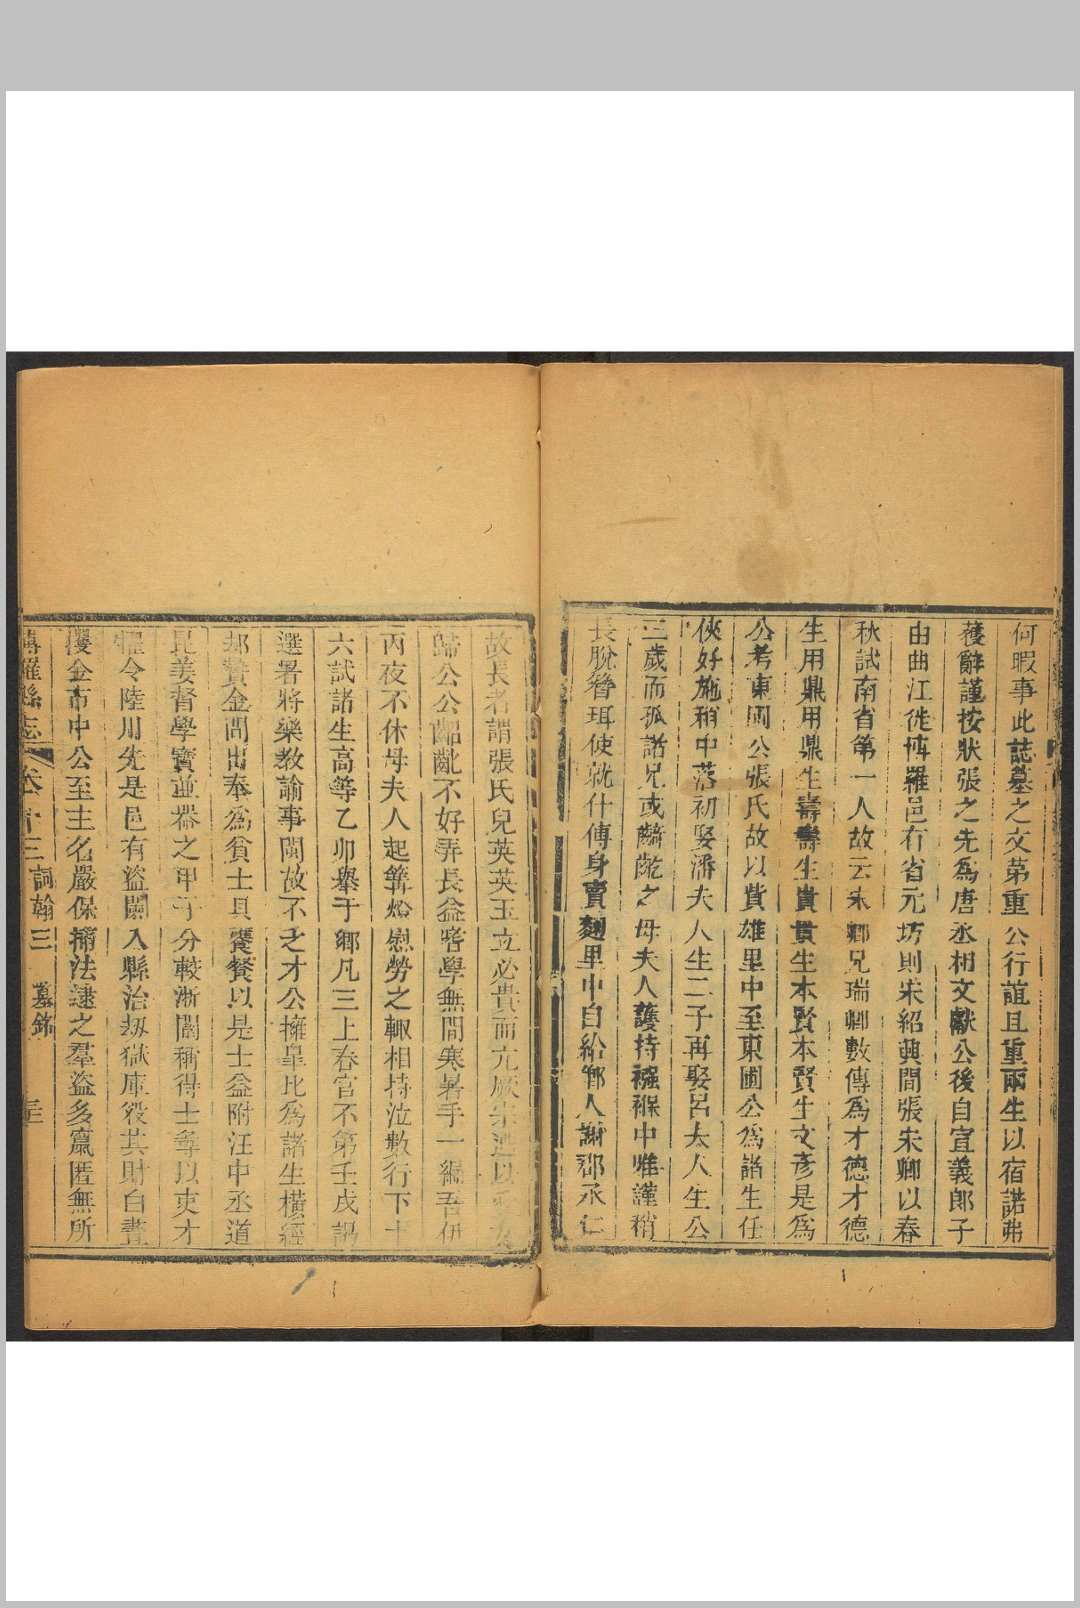 何暇事此誌墓之文第重公行誼且重兩生以宿諾弗
獲辭謹按狀張之先爲唐丞相文獻公後自宣義郎子
由曲江徙博羅邑有省元坊則宋紹興間張宋卿以春
秋試南省第一人故云宋卿兄瑞卿數傳爲才德才德
生用鼎用鼎生壽壽生貴貴生本賢本賢生文彥是爲
公考東園公張氏故以貲雄里中至東圃公爲諸生任
俠好施稍中落初娶潘夫人生二子再娶呂太人生公
三歲而孤諸兄或齮齕之母夫人護持襁褓中唯謹稍
長脫簪珥使就什傅身賣麹里中自給鄉人謝郡丞仁
故長者謂張氏兒英英玉立必貴而亢厥宗遂以
歸公公齠齔不好弄長益嗜學無間寒暑手一編吾伊
丙夜不休母夫人起篝燈慰勞之輙相持泣數行下十
六試諸生高等乙卯舉于鄉凡三上春官不第壬戌謁
選署將樂教諭事閩故不乏才公擁皐比爲諸生橫經
却贄金間出奉爲貧士具饔餐以是士益附汪中丞道
昆姜督學寶並器之甲子分較浙闈稱得士等以吏才
擢令陸川先是邑有盜闌入縣治刼獄庫殺其財白晝
攫金市中公至主名嚴保捕法逮之羣盜多竄匿無所
博羅縣志 卷十三 詞翰三 墓銘